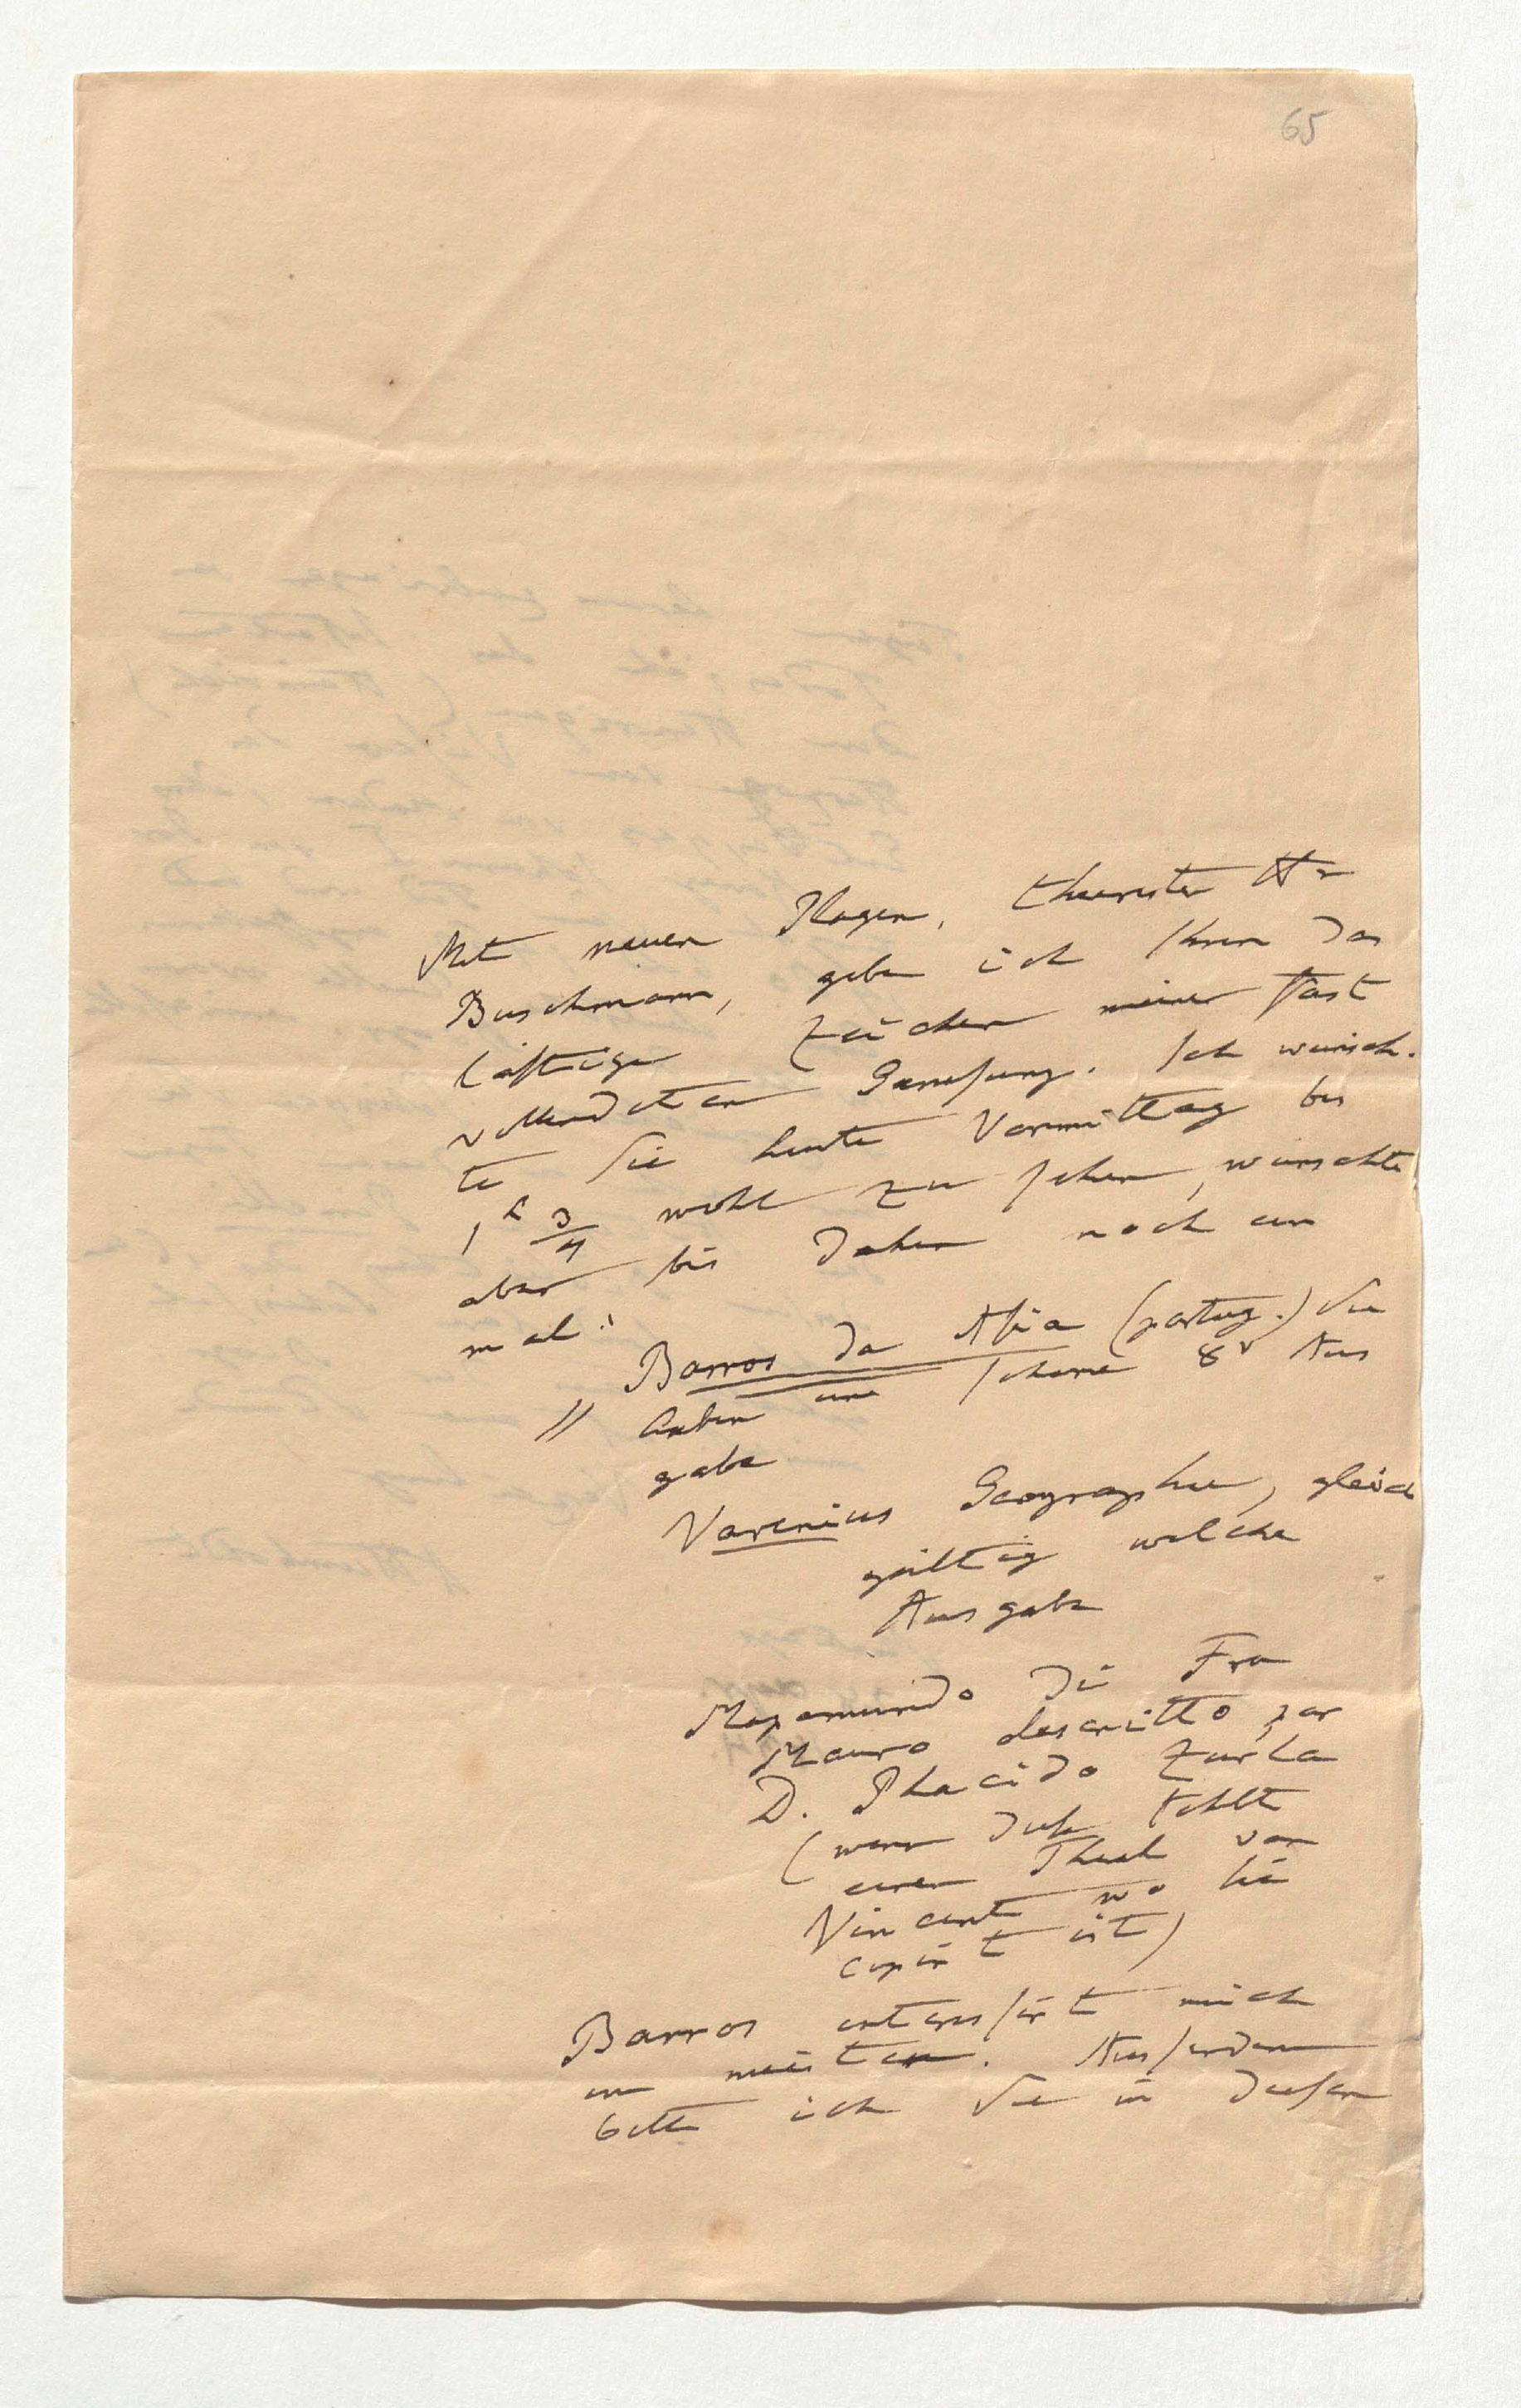 65
Mit neuen Plagen, theuerster Hr
Buschmann, gebe ich Ihnen das
lästige Zeichen meiner fast
vollendeten Genesung. Ich wünsch-
te Sie heute Vormittag bis
1h 3/4 wohl zu sehen, wünschte
aber bis dahin noch ein
mal:
// Barros da Asia (portug.) Sie
haben eine schöne 8v Aus
gabe
Varenius Geographie, gleich
gültig welche
Ausgabe
Mapamundo di Fra
Mauro descritto par
D. Placido Zurla
(wenn dies fehlt
einen Theil von
Vincent wo sie
copirt ist)
Barros interessirt mich
am meisten. Ausserdem
bitte ich Sie in diesen